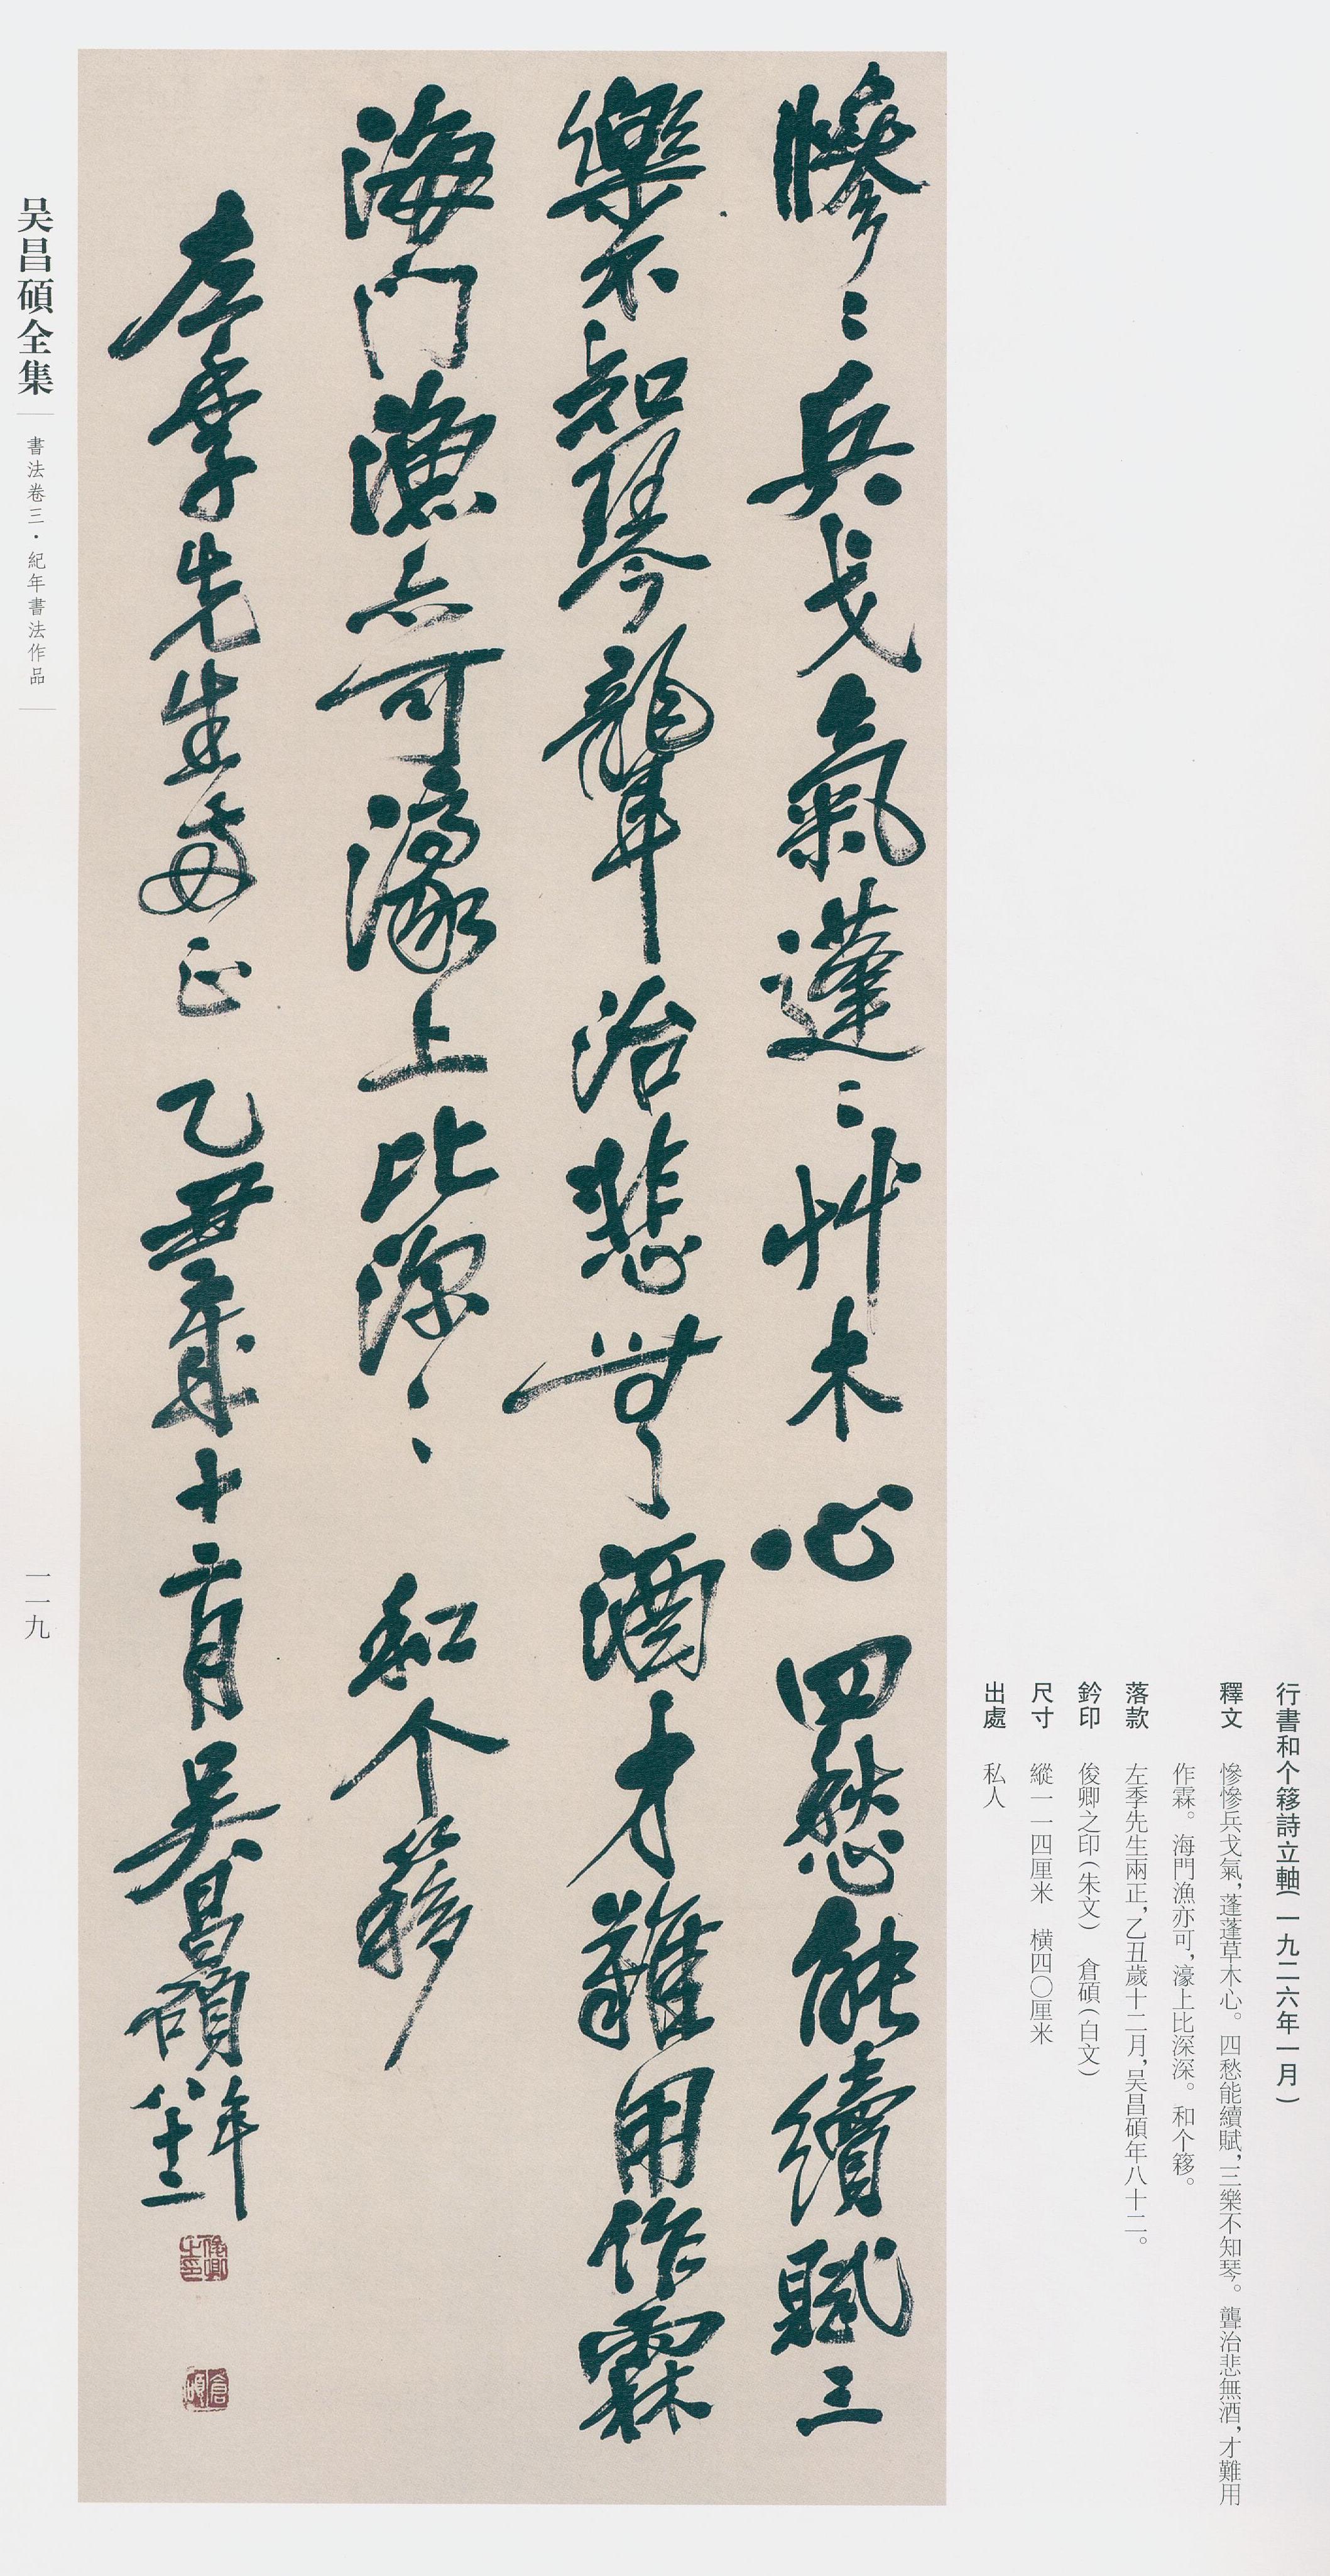 慘〻兵戈氣蓬〻艸木心四愁能續賦三
樂不知琴聾治悲無酒才難用作霖
海門漁亦可濠上比深〻和个簃
左季先生兩正乙丑歲十二月吳昌碩年八十二
俊卿之印
倉碩
行書和个簃詩立軸（一九二六年一月）
釋文 慘慘兵戈氣，蓬蓬草木心。四愁能續賦，三樂不知琴。聾治悲無酒，才難用
作霖。海門漁亦可，濠上比深深。和个簃。
落款 左季先生兩正，乙丑歲十二月，吴昌碩年八十二。
鈐印 俊卿之印（朱文） 倉碩（白文）
尺寸 縱一一四厘米 橫四〇厘米
出處 私人
吴昌碩全集
書法卷三·紀年書法作品
一一九